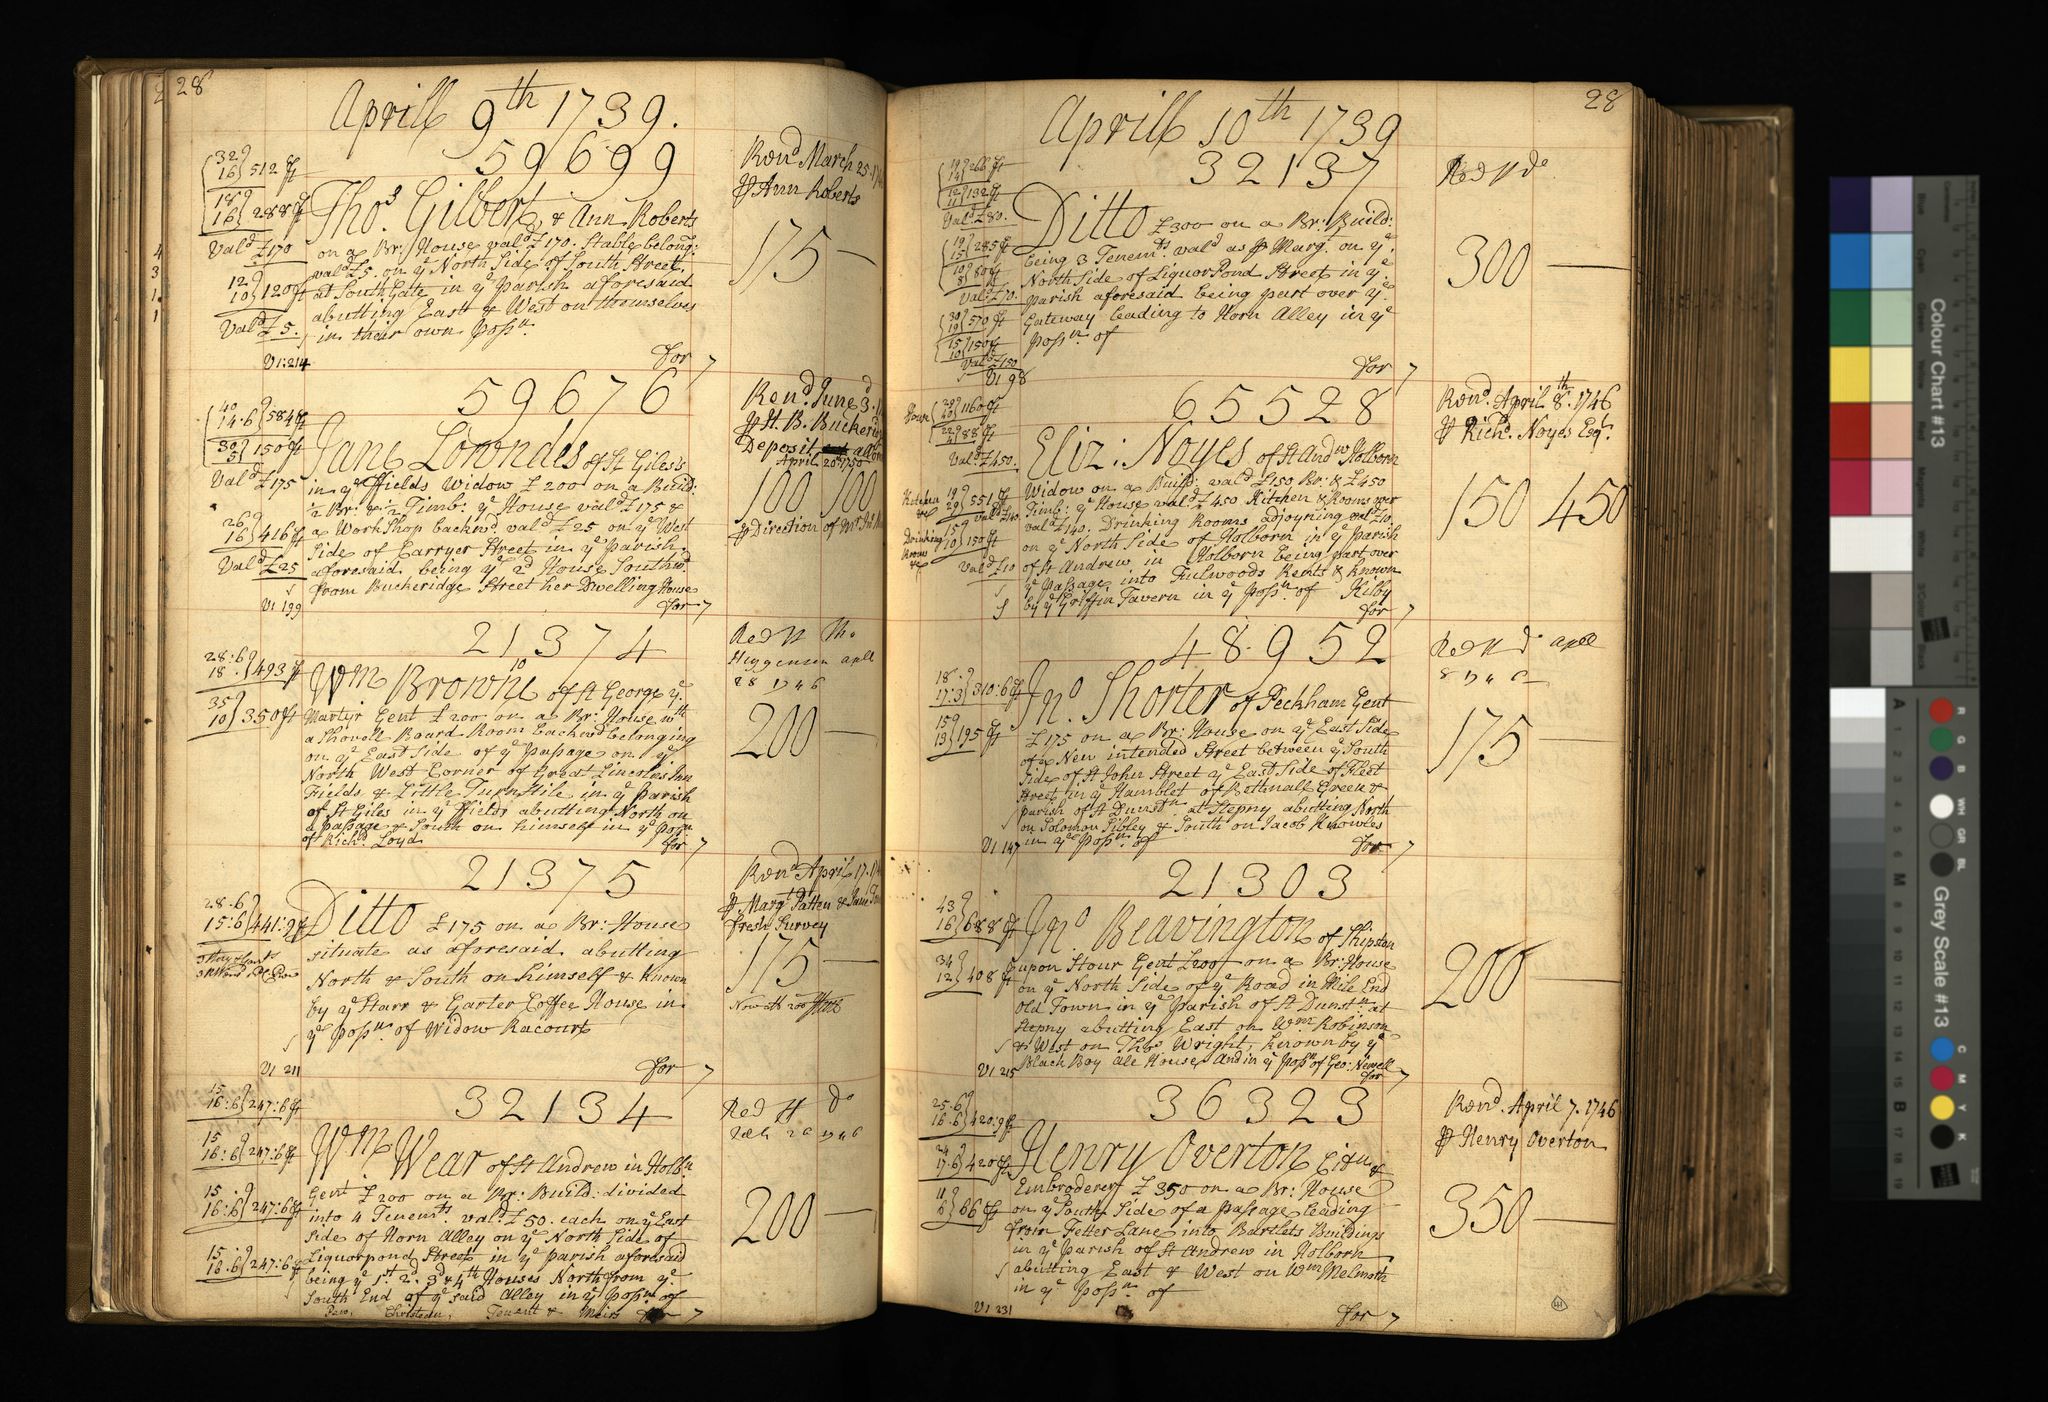 28
Aprill 9th 1739.
59699
32
16 } 512 ft
18
16 } 288 ft
Val.d £170
12
10 } 120 ft
Val.d £5.
V1:214
Thos. Gilbert & Ann Roberts
on a Br: House val.d £170. Stable belong:
val.d £5. on ye North Side of South Street
at South Gate in ye Parish aforesaid
abutting East & West on themselves
in their own Poss.n
for 7
Ren.d March 25.
Ann Roberts
175 —
59676
40
14.6 } 584 ft
30
5 } 150 ft
Val.d £175
26
16 } 416 ft
Val.d £25
V1 199
Jane Lowndes of St Giles's
in ye ffields Widow £200 on a Build:
½ Br: & ½ Timb: ye House val.d £175 &
a Work Shop backw.d val.d £25 on ye West
Side of Carryer Street in ye Parish
aforesaid being ye 2d House Southw.d
from Buckeridge Street her Dwelling House
for 7
Ren.d June 3.
H. B. Buckerid
Deposit
April 20 1750
100 100
Direction of Mr.
21374
28:6
18 } 493 ft
35
10 } 350 ft
10
Wm Browne of St George ye
Martyr Gent £200 on a Br: House wth
a Shovell Board Room backw.d belonging
on ye East Side of ye Passage on ye
North West Corner of Great Lincolns Inn
Fields & Little Turn Stile in ye Parish
of St Giles in ye ffields abutting North on
a Passage & South on himself in ye Poss.n
of Rich.d Loyd
for 7
Red Tho
Higgenson apll
28 1746
200 —
21375
28.6
15:6 } 441:9 ft
V1 211
Ditto £175 on a Br: House
situate as aforesaid abutting
North & South on himself & Known
by ye Starr & Garter Coffee House in
ye Poss.n of Widow Racourt
for 7
Ren.d April 17.
Margt Patten & Jane
fresh Survey
175 —
32134
15
16:6 } 247:6 ft
15
16:6 } 247:6 ft
15
16:6 } 247:6 ft
15
16:6 } 247:6 ft
Wm Wear of St Andrew in Holb.n
Gent £200 on a Br: Build: divided
into 4 Tenem.ts val.d £50. each on ye East
Side of Horn Alley on ye North Side of
Liquorpond Street in ye Parish aforesaid
being ye 1st 2d 3d & 4th Houses North from ye
South End of ye said Alley in ye Poss.n of
for 7
Red do
1746
200 —
28
Aprill 10th 1739
32137
19
14 } 266 ft
12
11 } 132 ft
Val.d £80.
19
15 } 285 ft
10
8 } 80 ft
Val.d £70.
30
19 } 570 ft
15
10 } 150 ft
Val.d £150
V1 98
Ditto £300 on a Br: Build:
being 3 Tenem.ts val.d as Marg.t on ye
North Side of Liquor Pond Street in ye
Parish aforesaid being part over ye
Gateway leading to Horn Alley in ye
Poss.n of
for 7
Red do
300 —
65528
House
29
40 } 1160 ft
22
4 } 88 ft
Val.d £450.
Kitchen
19
29 } 551 ft
Val.d £140
Drinking
Rooms
15
10 } 150 ft
Val.d £10
Eliz: Noyes of St Andw Holborn
Widow on a Build: val.d £150 Br: & £450
Timb: ye House val.d £450 Kitchen & Rooms over
val.d £140. Drinking Rooms adjoyning val.d £10
on ye North Side of Holborn in ye Parish
of St Andrew in Holborn being part over
ye Passage into Fulwoods Rents & known
by ye Griffin Tavern in ye Poss.n of Kilby
for 7
Ren.d April 8th 1746
Rich.d Noyes Esq.r
150 450
48952
18
17:3 } 310:6 ft
15
13 } 195 ft
V1 147
Jno. Shorter of Peckham Gent
£175 on a Br: House on ye East Side
of a New intended Street between ye South
Side of St John Street ye East Side of Fleet
Street in ye Hamblet of Bethnall Green &
Parish of St Dunst.n at Stepny abutting North
on Solomon Sibley & South on Jacob Knowles
in ye Poss.n of
for 7
Red apll
175 —
21303
43
16 } 688 ft
34
12 } 408 ft
V1 215
Jno Beavington of Shipston
upon Stour Gent £200 on a Br: House
on ye North Side of ye Road in Mile End
Old Town in ye Parish of St Dunst.n at
Stepny abutting East on Wm Robinson
& West on Thos Wright, known by ye
Black Boy Ale House And in ye Poss.n of Geo: Newell
for 7
200 —
36323
25.6
16.6 } 420:9 ft
24
17.6 } 420 ft
11
6 } 66 ft
V1 231
Henry Overton Citn &
Embroderer £350 on a Br: House
on ye South Side of a Passage leading
from Fetter Lane into Bartlets Buildings
in ye Parish of St Andrew in Holborn
abutting East & West on Wm Melmoth
in ye Poss.n of
for 7
Ren.d April 7. 1746
Henry Overton
350 —
Colour Chart #13
Blue
Cyan
Green
Yellow
Red
Magenta
White
3/Colour
Black
Grey Scale #13
A 1 2 3 4 5 6 M 8 9 10 11 12 13 14 15 B 17 18 19
R
G
B
WH
GR
BL
C
M
Y
K